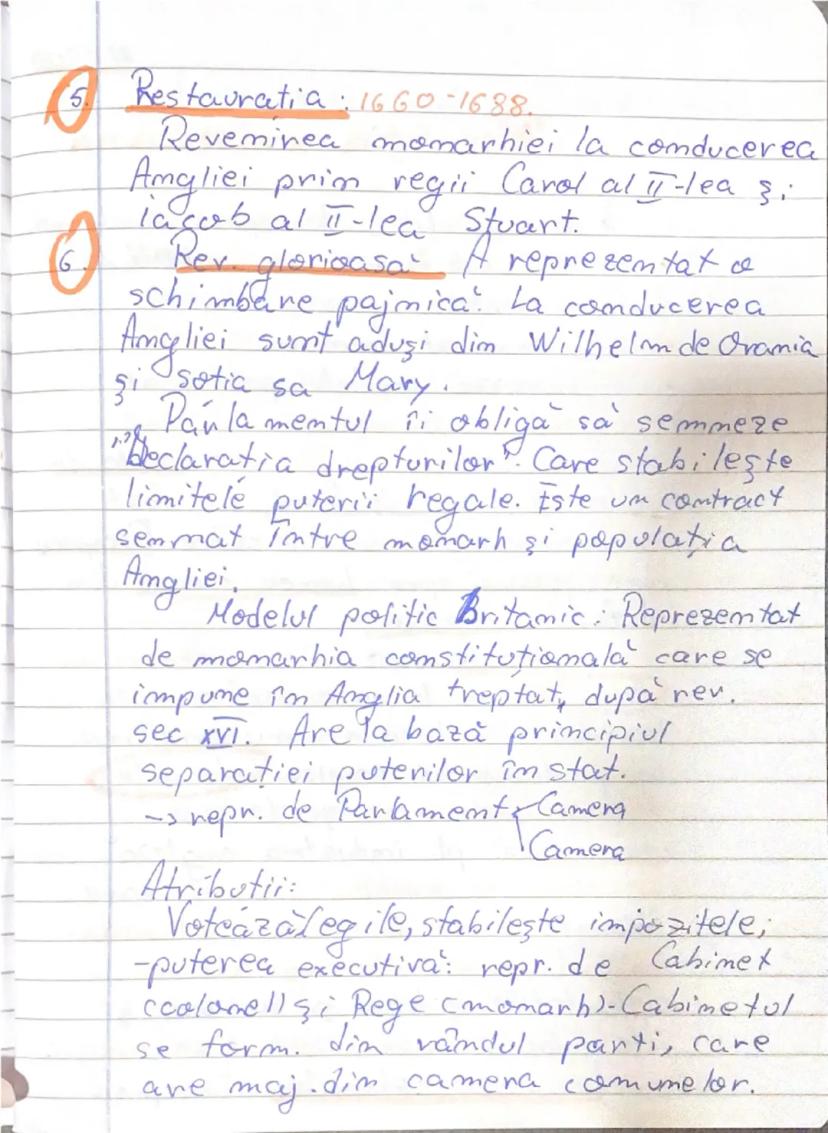 5. Restauratia: 1660-1688.
Revenirea monarhiei la conducerea
Angliei prin regii Carol al II-lea și
iacob al II-lea Stuart.
6. Rev. glorioasă A reprezentat o
schimbare pajnică. La conducerea
Angliei sunt aduși din Wilhelm de Orania
și sotia sa Mary.
Parlamentul îi obligă să semneze
"Declaratia drepturilor". Care stabilește
limitele puterii regale. Este un contract
semnat între monarh și populația
Angliei.
Modelul politic Britanic: Reprezentat
de monarhia constituțională care se
impune în Anglia treptat, după rev.
sec XVI. Are la bază principiul
separației puterilor în stat.
-> repr. de Parlament Camera
Camera
Atributii:
Votează legile, stabilește impozitele;
-puterea executivă: repr. de Cabinet
și Rege (monarh)-Cabinetul
se form. din rândul parti, care
are maj. din camera comunelor.